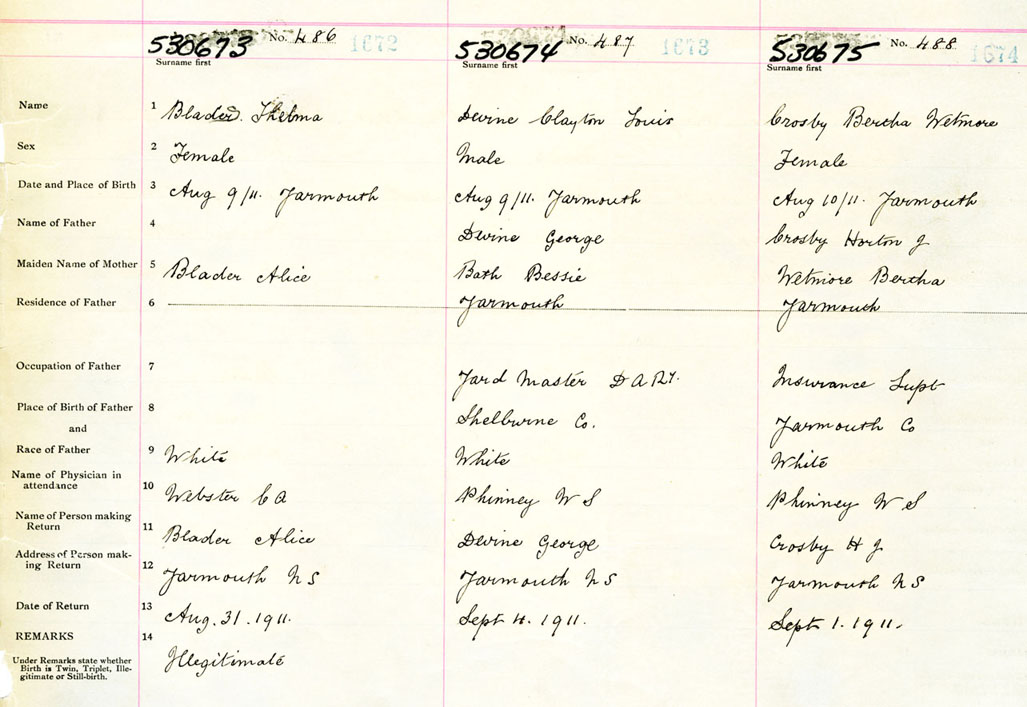 530673 No. 486 1672 530674 No. 487 1673 530675 No. 488 1674
Surname first Surname first Surname first
Name 1 Blader Thelma Devine Clayton Louis Crosby Bertha Wetmore
Sex 2 Female Male Female
Date and Place of Birth 3 Aug 9/11. Yarmouth Aug 9/11. Yarmouth Aug 10/11. Yarmouth
Name of Father 4 Devine George Crosby Horton J
Maiden Name of Mother 5 Blader Alice Bath Bessie Wetmore Bertha
Residence of Father 6 Yarmouth Yarmouth
Occupation of Father 7 Yard Master D A Ry. Insurance Supt
Place of Birth of Father 8 Shelburne Co. Yarmouth Co
and
Race of Father 9 White White White
Name of Physician in
attendance 10 Webster C A Phinney W S Phinney W S
Name of Person making
Return 11 Blader Alice Devine George Crosby H J
Address of Person mak-
ing Return 12 Yarmouth N S Yarmouth N S Yarmouth N S
Date of Return 13 Aug. 31. 1911. Sept 4. 1911. Sept 1. 1911.
REMARKS 14 Illegitimate
Under Remarks state whether
Birth is Twin, Triplet, Ille-
gitimate or Still-birth.